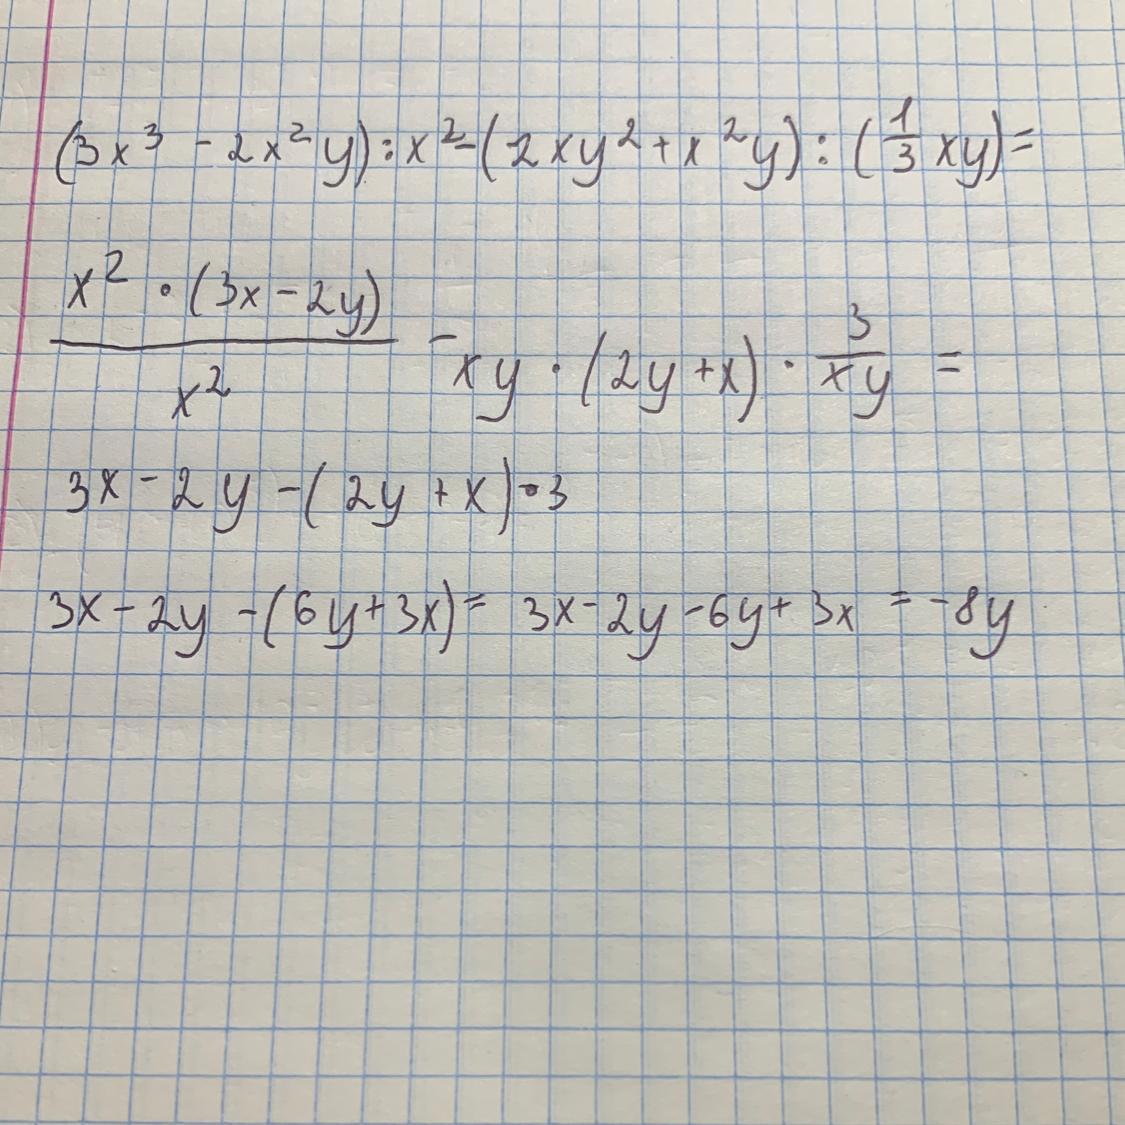 (3x³ - 2x²y) : x² - (2xy² + x²y) : (1/3 xy) =
x² · (3x - 2y) / x² - xy · (2y + x) · 3/xy =
3x - 2y - (2y + x) · 3
3x - 2y - (6y + 3x) = 3x - 2y - 6y + 3x = -8y